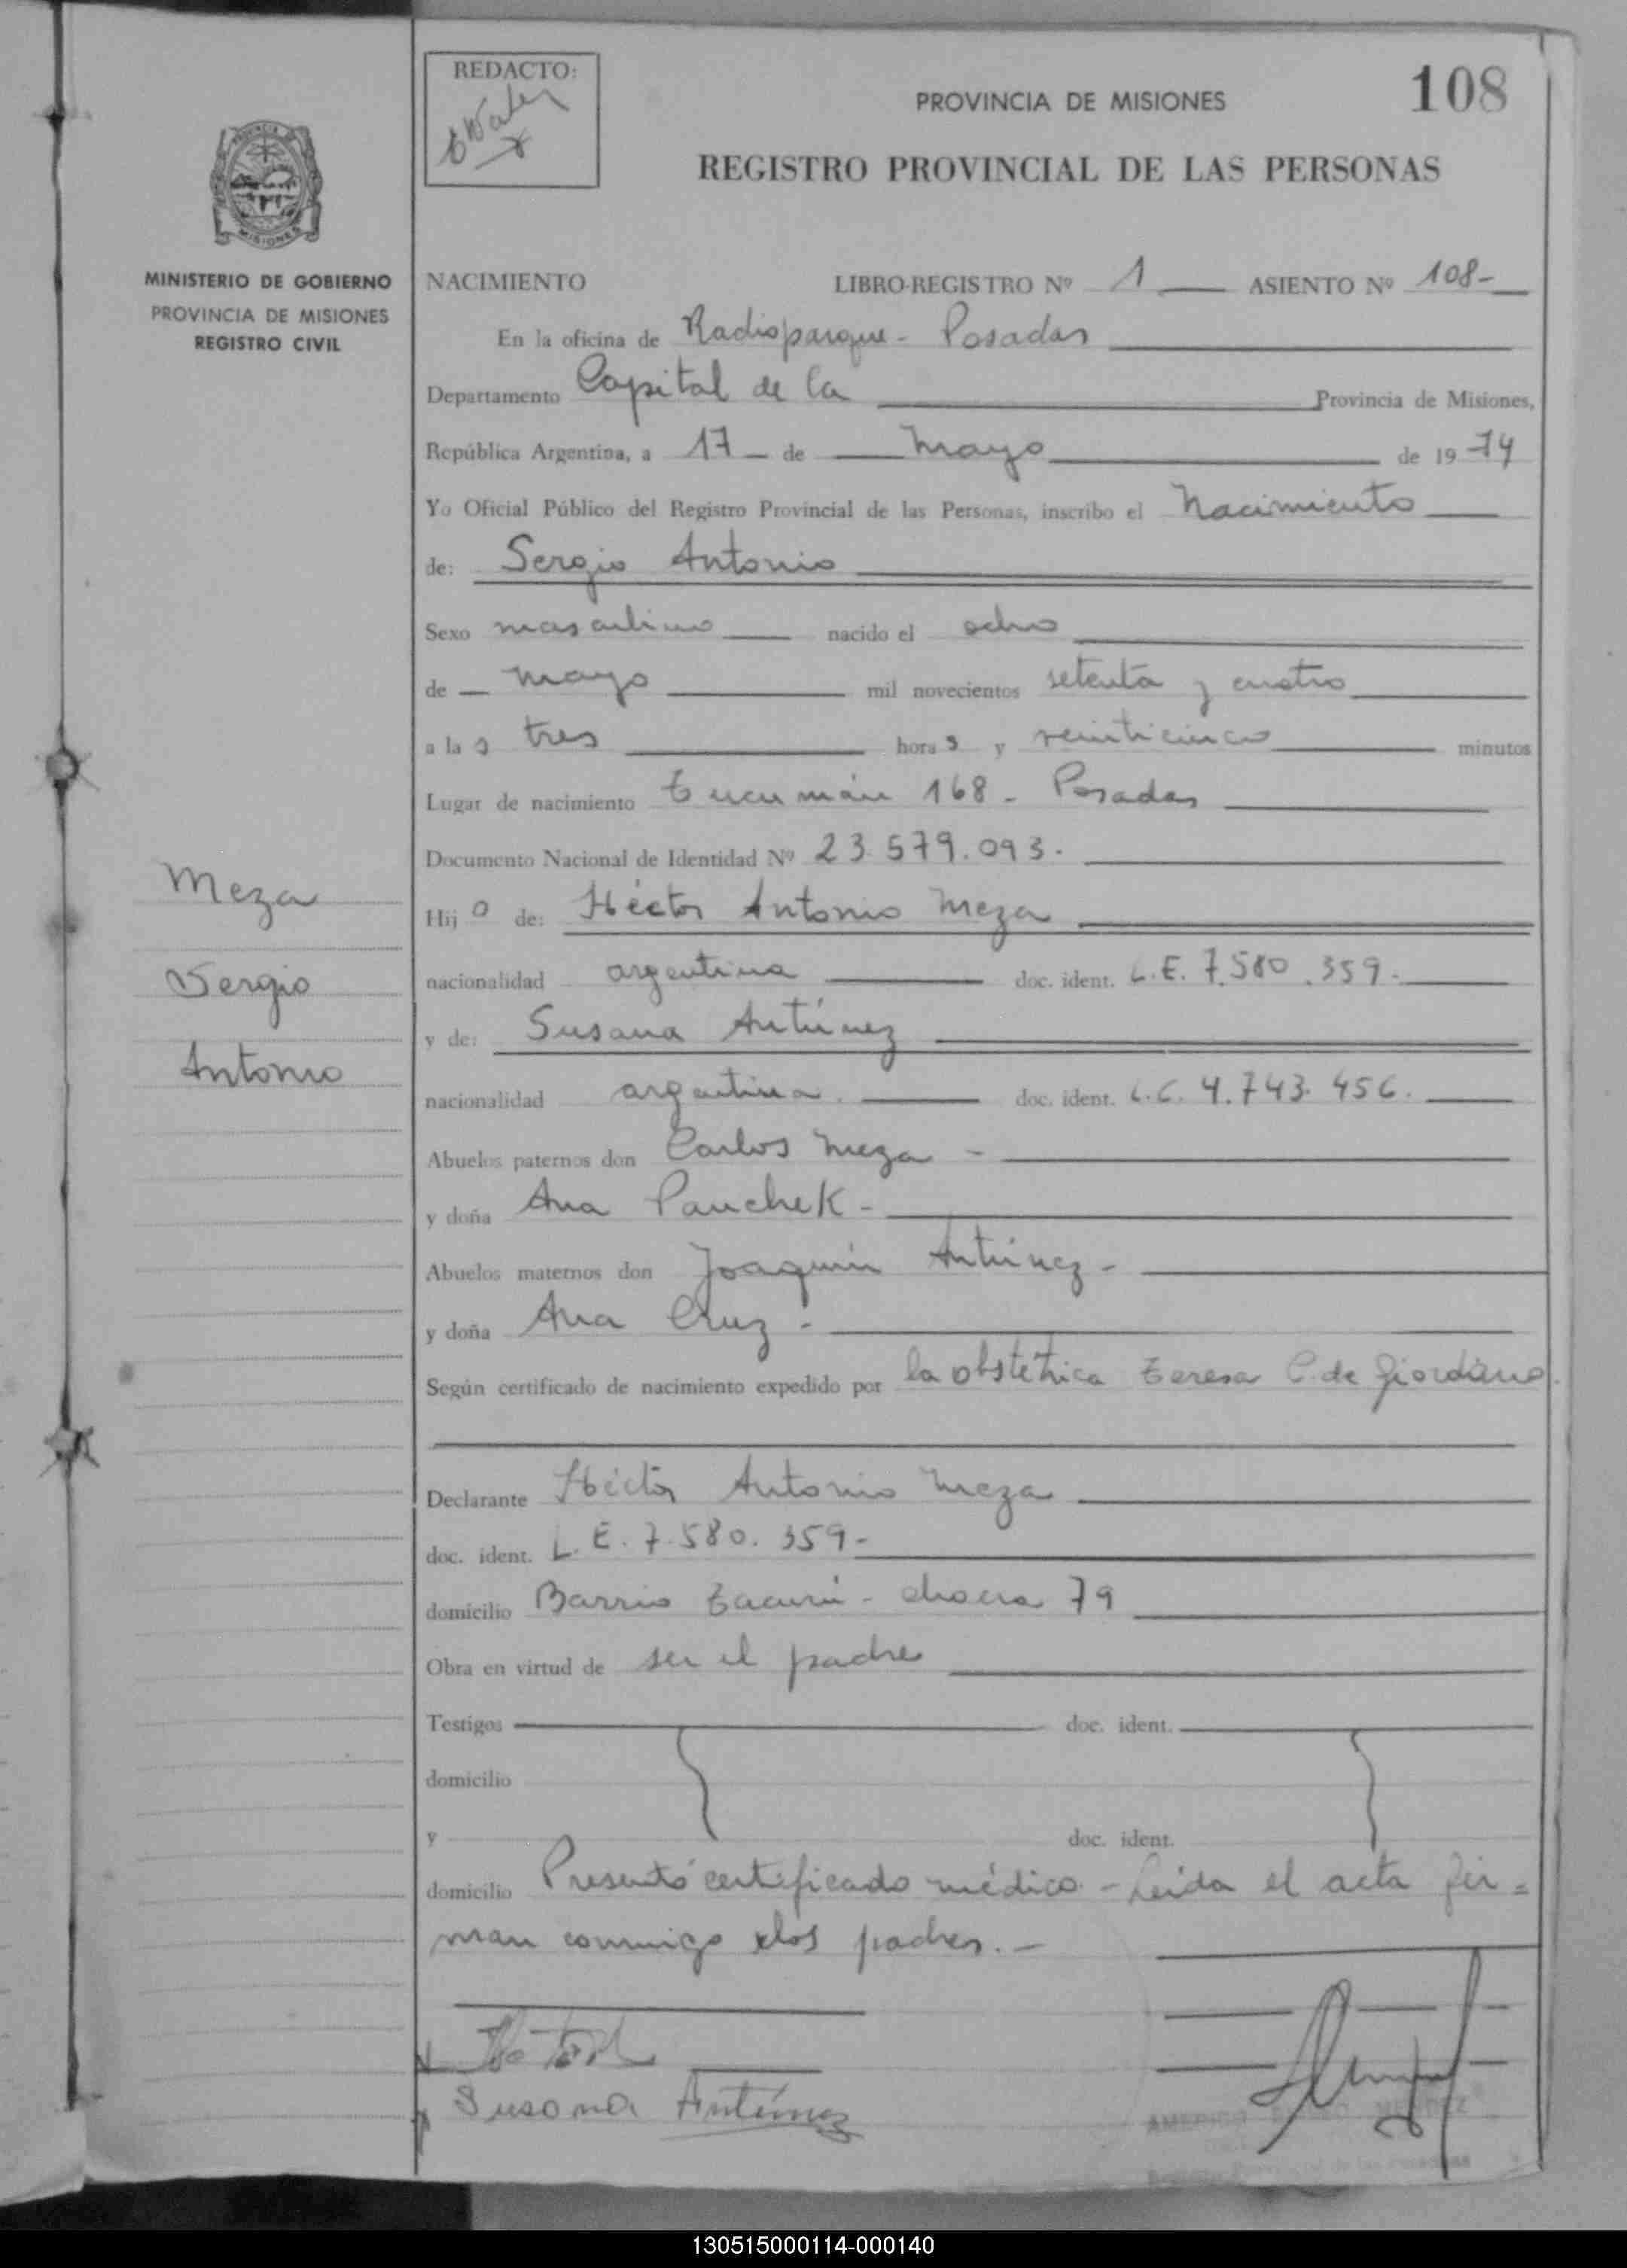 REDACTO:
PROVINCIA DE MISIONES
108
REGISTRO PROVINCIAL DE LAS PERSONAS
PROVINCIA DE
MISIONES
MINISTERIO DE GOBIERNO
PROVINCIA DE MISIONES
REGISTRO CIVIL
NACIMIENTO LIBRO-REGISTRO Nº 1 ASIENTO Nº 108-
En la oficina de Radioparque - Posadas
Departamento Capital de la Provincia de Misiones,
República Argentina, a 17 de Mayo de 1974
Yo Oficial Público del Registro Provincial de las Personas, inscribo el Nacimiento
de: Sergio Antonio
Sexo masculino nacido el ocho
de mayo mil novecientos setenta y cuatro
a las tres horas y veinticinco minutos
Lugar de nacimiento Tucumán 168 - Posadas
Documento Nacional de Identidad Nº 23.579.093.
Meza
Hijo de: Héctor Antonio Meza
Sergio
nacionalidad argentina doc. ident. L.E. 7.580.359.
y de: Susana Antúnez
Antonio
nacionalidad argentina. doc. ident. L.C. 4.743.456.
Abuelos paternos don Carlos Meza -
y doña Ana Panchek -
Abuelos maternos don Joaquín Antúnez -
y doña Ana Cruz -
Según certificado de nacimiento expedido por la obstétrica Teresa C. de Giordano.
Declarante Héctor Antonio Meza
doc. ident. L.E. 7.580.359-
domicilio Barrio Tacurú - chacra 79
Obra en virtud de ser el padre
Testigos doc. ident.
domicilio
y doc. ident.
domicilio Presentó certificado médico - Leída el acta fir=
man conmigo los padres. -
Susana Antúnez
130515000114-000140